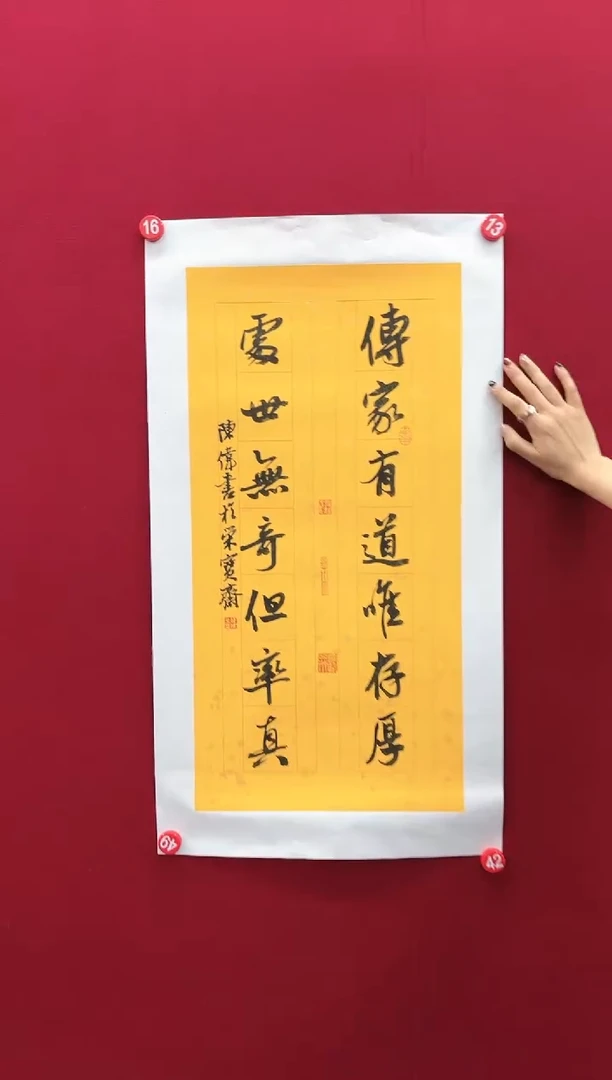 傳家有道唯存厚
處世無奇但率真
陳偉書於榮寶齋
16
13
49
42